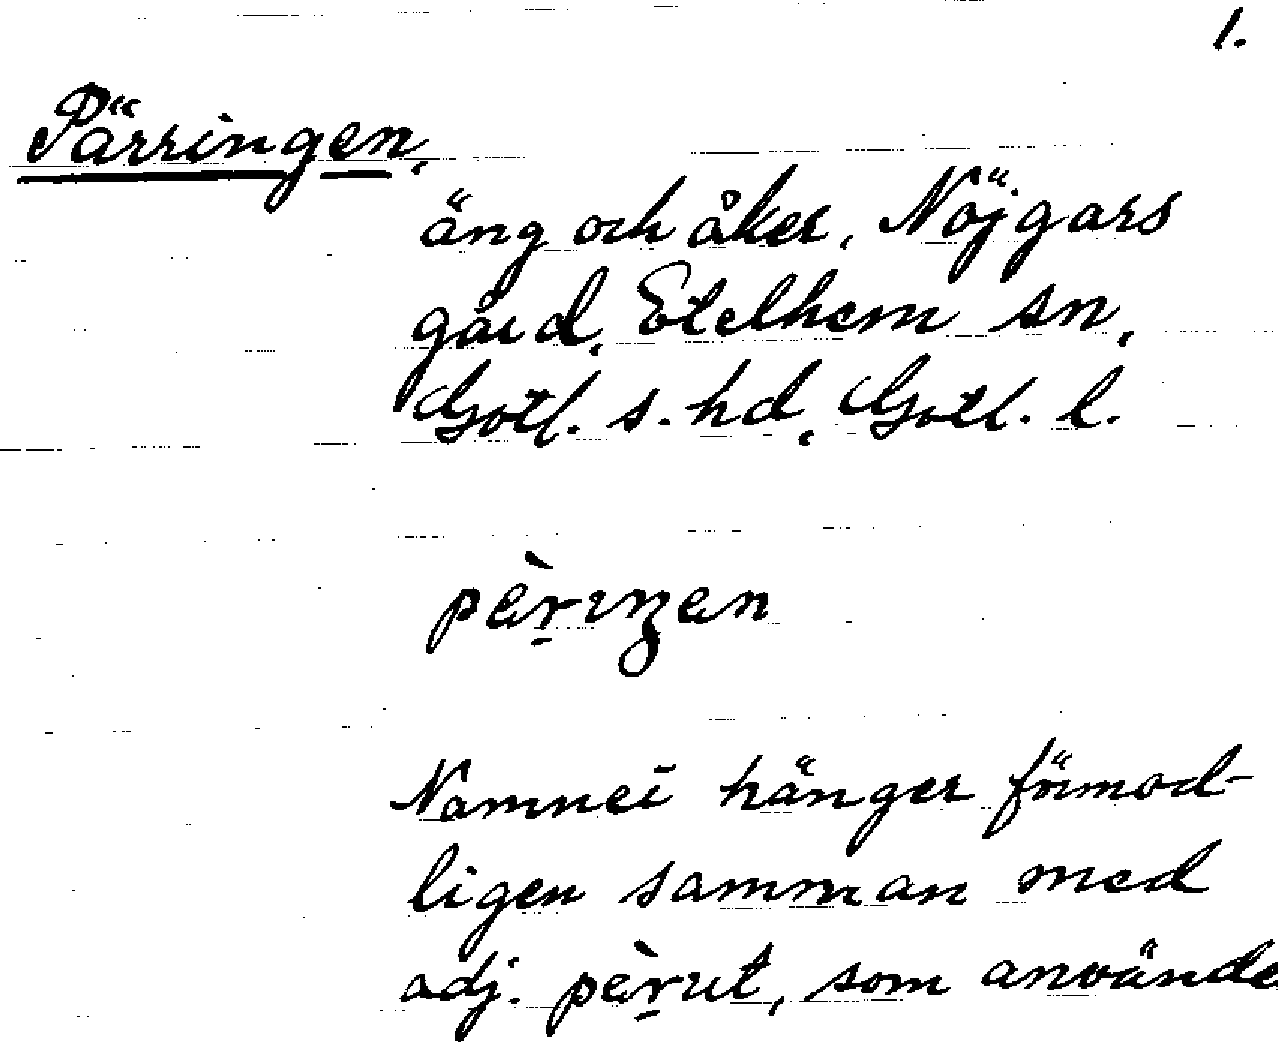 1.
Pärringen,
äng och åker, Nöjgars
gård, Etelhem sn,
Gotl. s. hd, Gotl. l.
pèr̠ıŋen
Namnet hänger förmod-
ligen samman med
adj. pèr̠ut, som använde